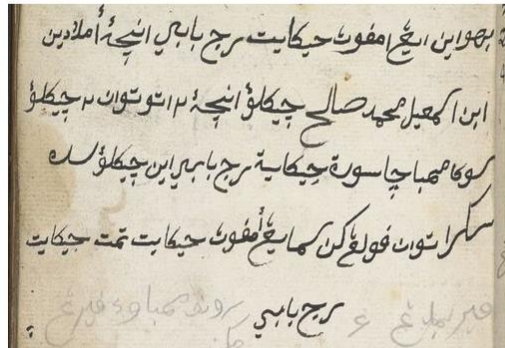 بهوا اين ايڠ امڤوڽ حكايت راج بابي انچئ أملادين
ابن اسمعيل محمد صالح جيكلو انچئ ٢ اتو توان ٢ جيكلو
سوك ممباچ سورة حكاية راج بابي اين جيكلو سده
سكرا توان ڤولڠكن كڤد يڠ أمڤوڽ حكايت تمت حكايت
راج بابي